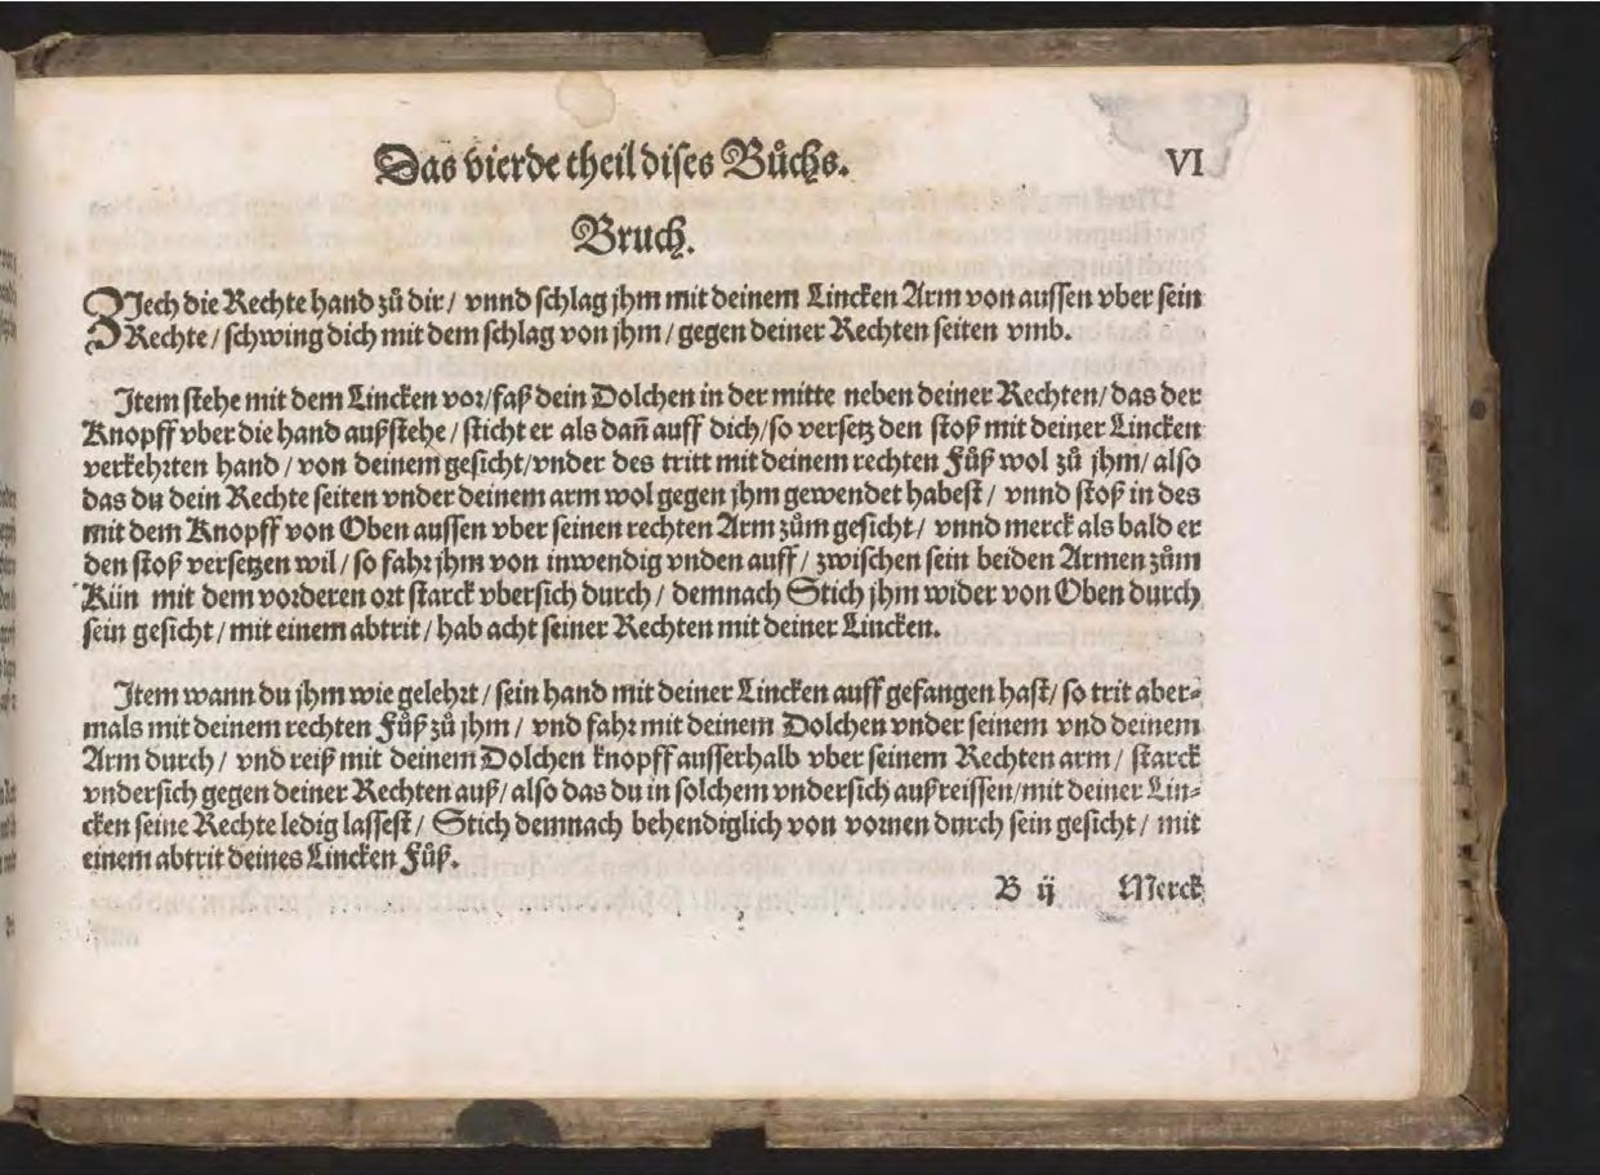 Das vierde theil dises Bůchs. VI
Bruch.
ZJech die Rechte hand zů dir / vnnd schlag jhm mit deinem Lincken Arm von aussen vber sein
Rechte / schwing dich mit dem schlag von jhm / gegen deiner Rechten seiten vmb.
Jtem stehe mit dem Lincken vor / faß dein Dolchen in der mitte neben deiner Rechten / das der
Knopff vber die hand außstehe / sticht er als dañ auff dich / so versetz den stoß mit deiner Lincken
verkehrten hand / von deinem gesicht / vnder des tritt mit deinem rechten Fůß wol zů jhm / also
das du dein Rechte seiten vnder deinem arm wol gegen jhm gewendet habest / vnnd stoß in des
mit dem Knopff von Oben aussen vber seinen rechten Arm zům gesicht / vnnd merck als bald er
den stoß versetzen wil / so fahr jhm von inwendig vnden auff / zwischen sein beiden Armen zům
Kün mit dem vorderen ort starck vbersich durch / demnach Stich jhm wider von Oben durch
sein gesicht / mit einem abtrit / hab acht seiner Rechten mit deiner Lincken.
Jtem wann du jhm wie gelehrt / sein hand mit deiner Lincken auff gefangen hast / so trit aber⸗
mals mit deinem rechten Fůß zů jhm / vnd fahr mit deinem Dolchen vnder seinem vnd deinem
Arm durch / vnd reiß mit deinem Dolchen knopff ausserhalb vber seinem Rechten arm / starck
vndersich gegen deiner Rechten auß / also das du in solchem vndersich außreissen / mit deiner Lin⸗
cken seine Rechte ledig lassest / Stich demnach behendiglich von vornen durch sein gesicht / mit
einem abtrit deines Lincken Fůß.
B ij Merck